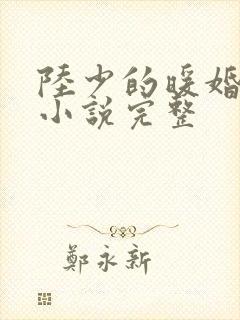 陸少的暖婚
小說完整
鄭永新